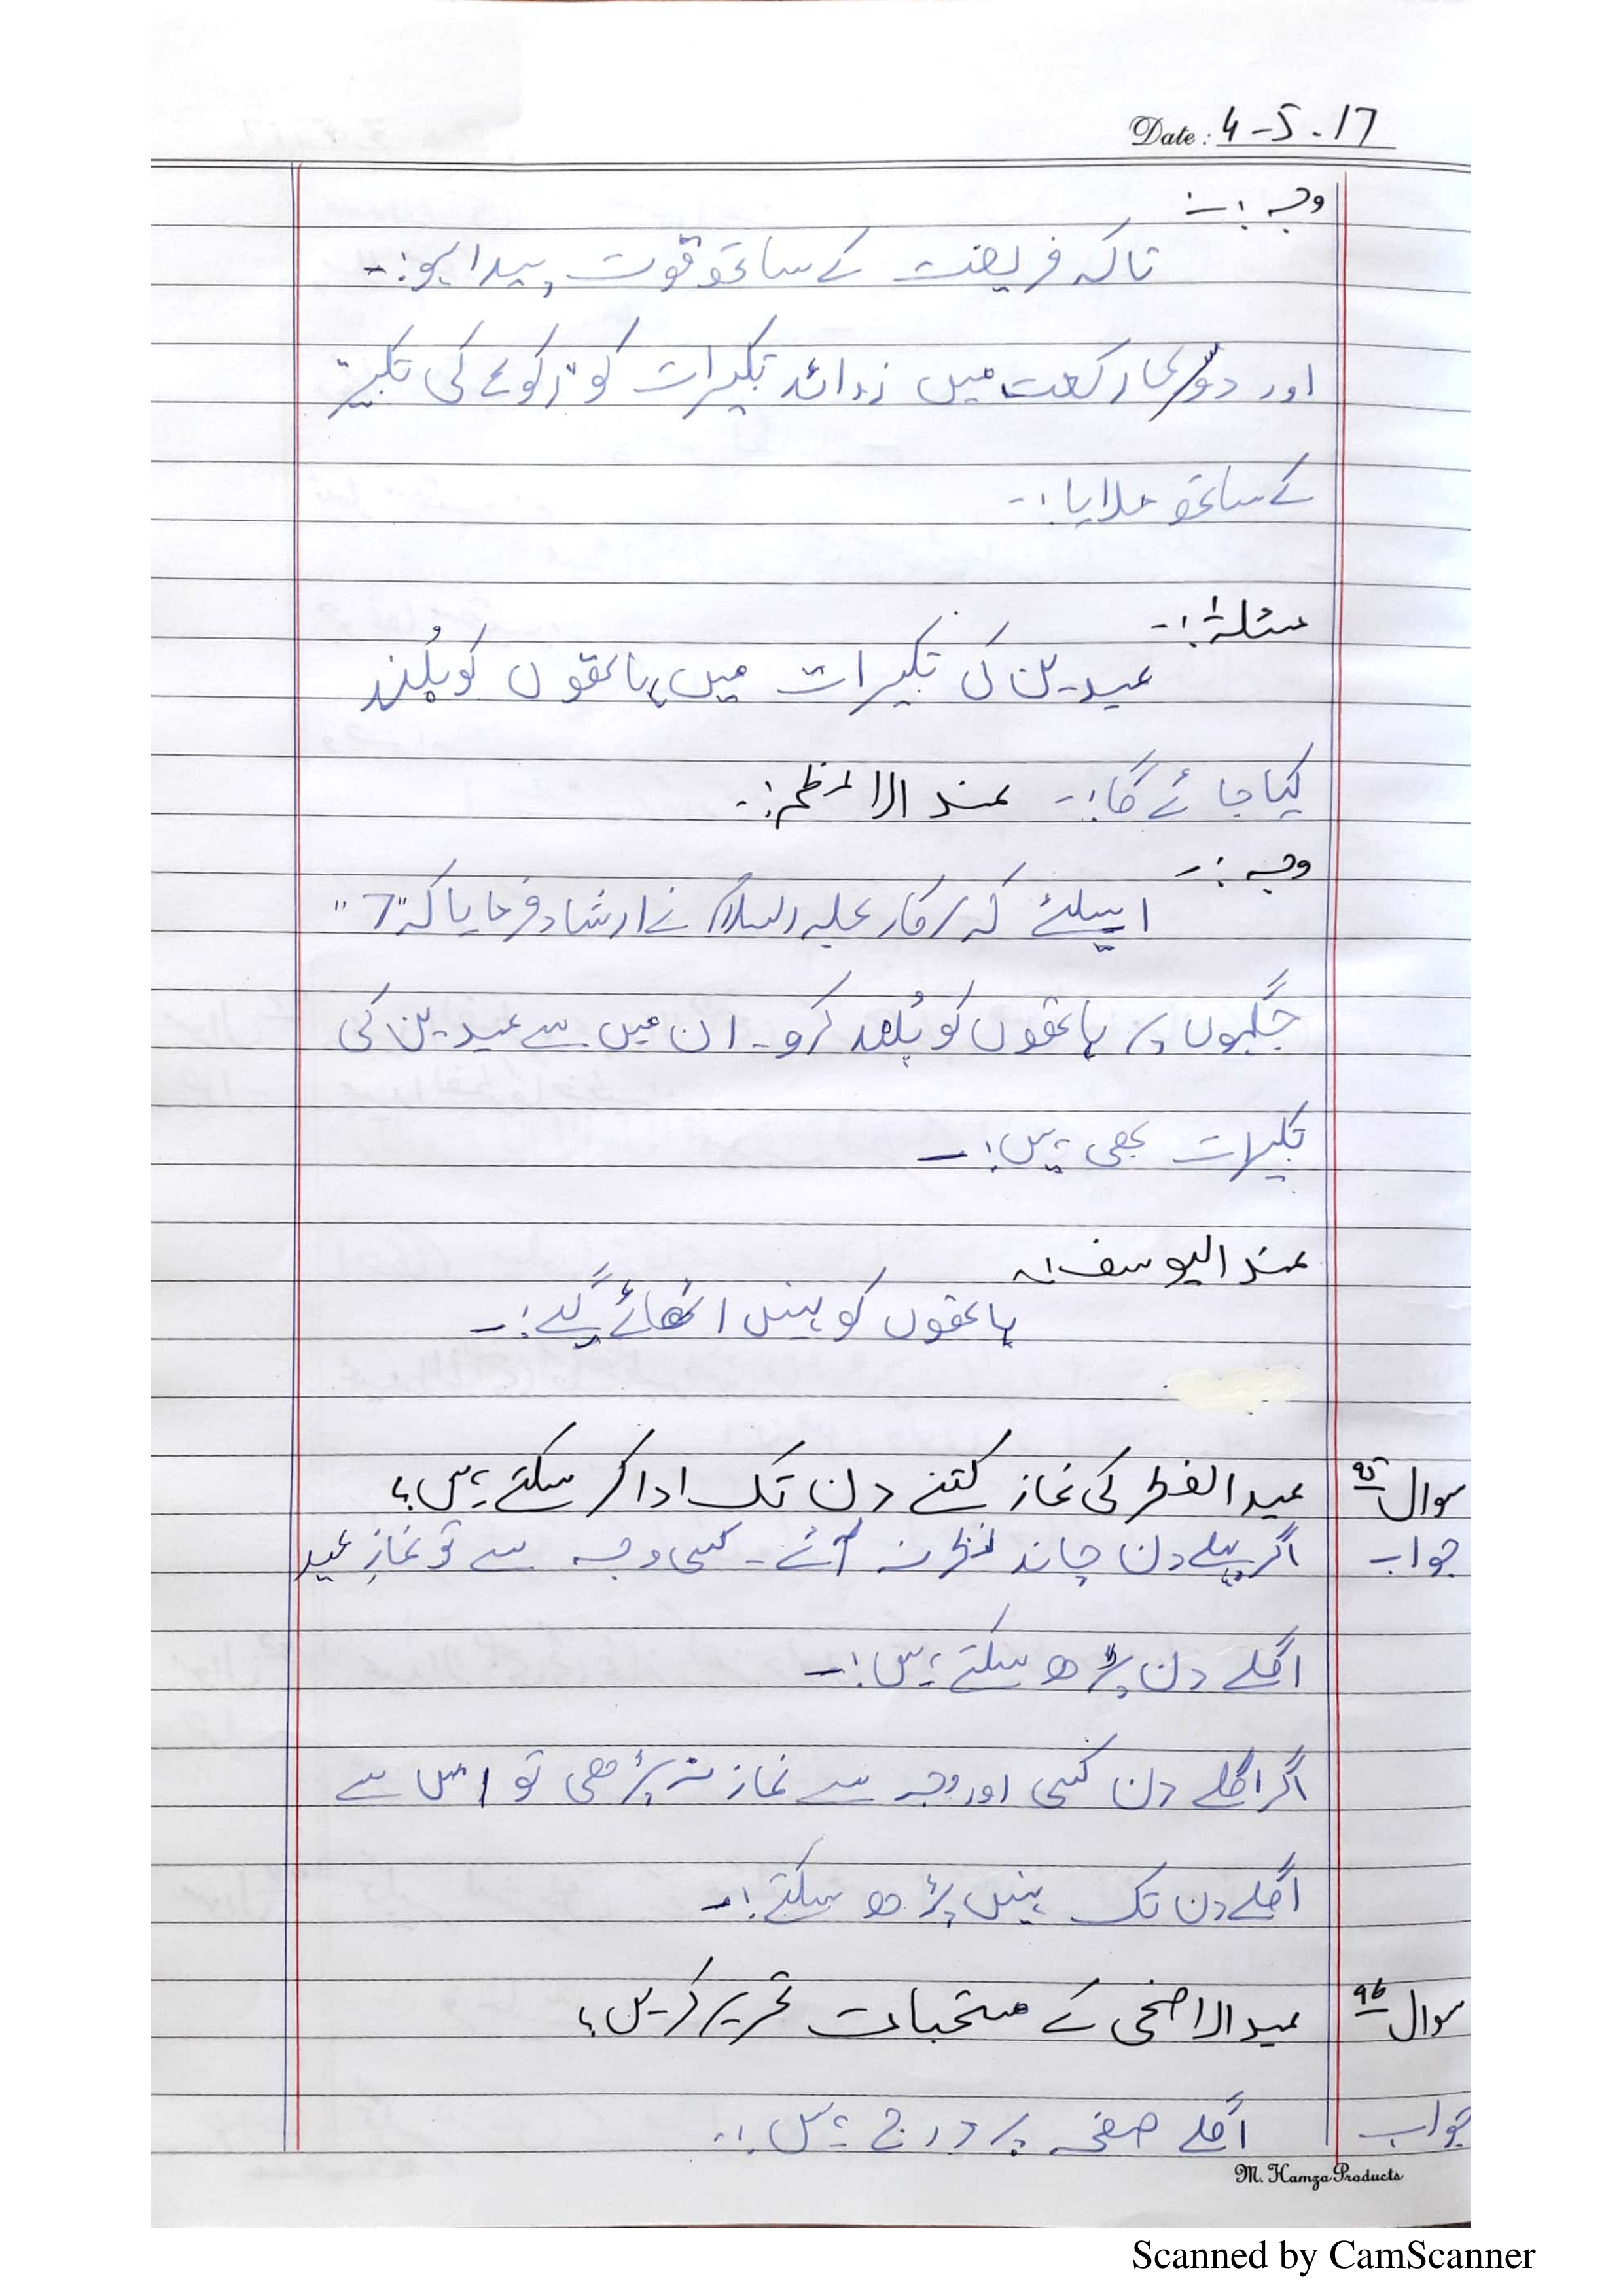 Date: 4-5-17
وجہ :-
تاکہ فریضت کے ساتھ قوت پیدا ہو :-
اور دوسری رکعت میں زوائد تکبیرات کو "رکوع کی تکبیر"
کے ساتھ ملایا :-
مسئلہ :-
عیدین کی تکبیرات میں ہاتھوں کو بُلند
کیا جائے گا :- عند الاعظم :-
وجہ :-
اسلئے کہ سرکار علیہ السلام نے ارشاد فرمایا کہ "7"
جگہوں پر ہاتھوں کو بُلند کرو۔ ان میں سے عیدین کی
تکبیرات بھی ہیں :-
عند الیوسف :-
ہاتھوں کو نہیں اٹھائے گے :-
سوال ۹۵ عید الفطر کی نماز کتنے دن تک ادا کر سکتے ہیں؟
جواب اگر پہلے دن چاند نظر نہ آئے - کسی وجہ سے تو نمازِ عید
اگلے دن پڑھ سکتے ہیں :-
اگر اگلے دن کسی اور وجہ سے نماز نہ پڑھی تو اس سے
اگلے دن تک نہیں پڑھ سکتے :-
سوال ۹۶ عید الاضحی کے مستحبات تحریر کریں؟
جواب اگلے صفحہ پر درج ہیں :-
M. Hamza Products
Scanned by CamScanner